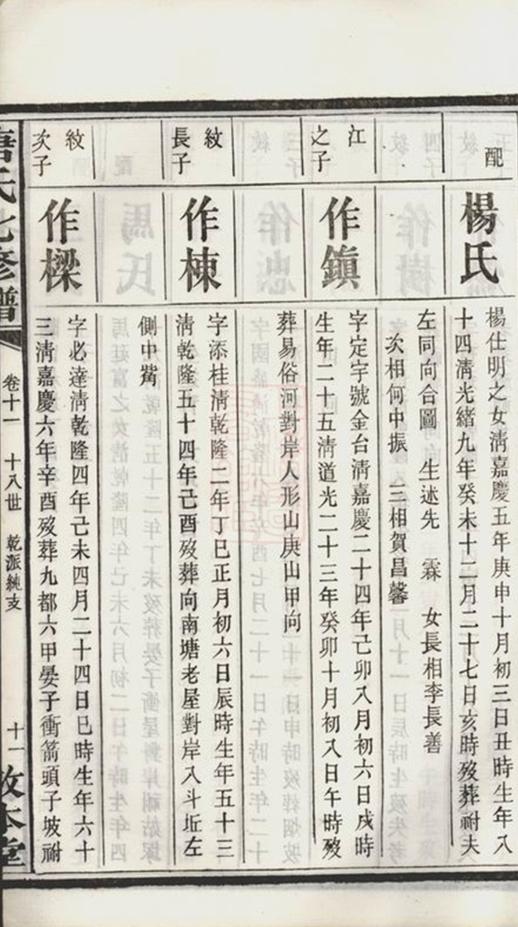 配
楊氏
楊仕明之女淸嘉慶五年庚申十月初三日丑時生年八
十四淸光緒九年癸未十二月二十七日亥時歿葬祔夫
左同向合圖 生述先 霖 女長相李長善
次相何中振 三相賀昌馨
江之子
作鎭
字定字號金台淸嘉慶二十四年己卯八月初六日戌時
生年二十五淸道光二十三年癸卯十月初八日午時歿
葬易俗河對岸人形山庚山甲向
紋長子
作棟
字添桂淸乾隆二年丁巳正月初六日辰時生年五十三
淸乾隆五十四年己酉歿葬向南塘老屋對岸八斗坵左
側中觜
紋次子
作樑
字必達淸乾隆四年己未四月二十四日巳時生年六十
三淸嘉慶六年辛酉歿葬九都六甲晏子衝箭頭子坡祔
氏七修譜
卷十一 十八世 乾派純支
十一
敦本堂